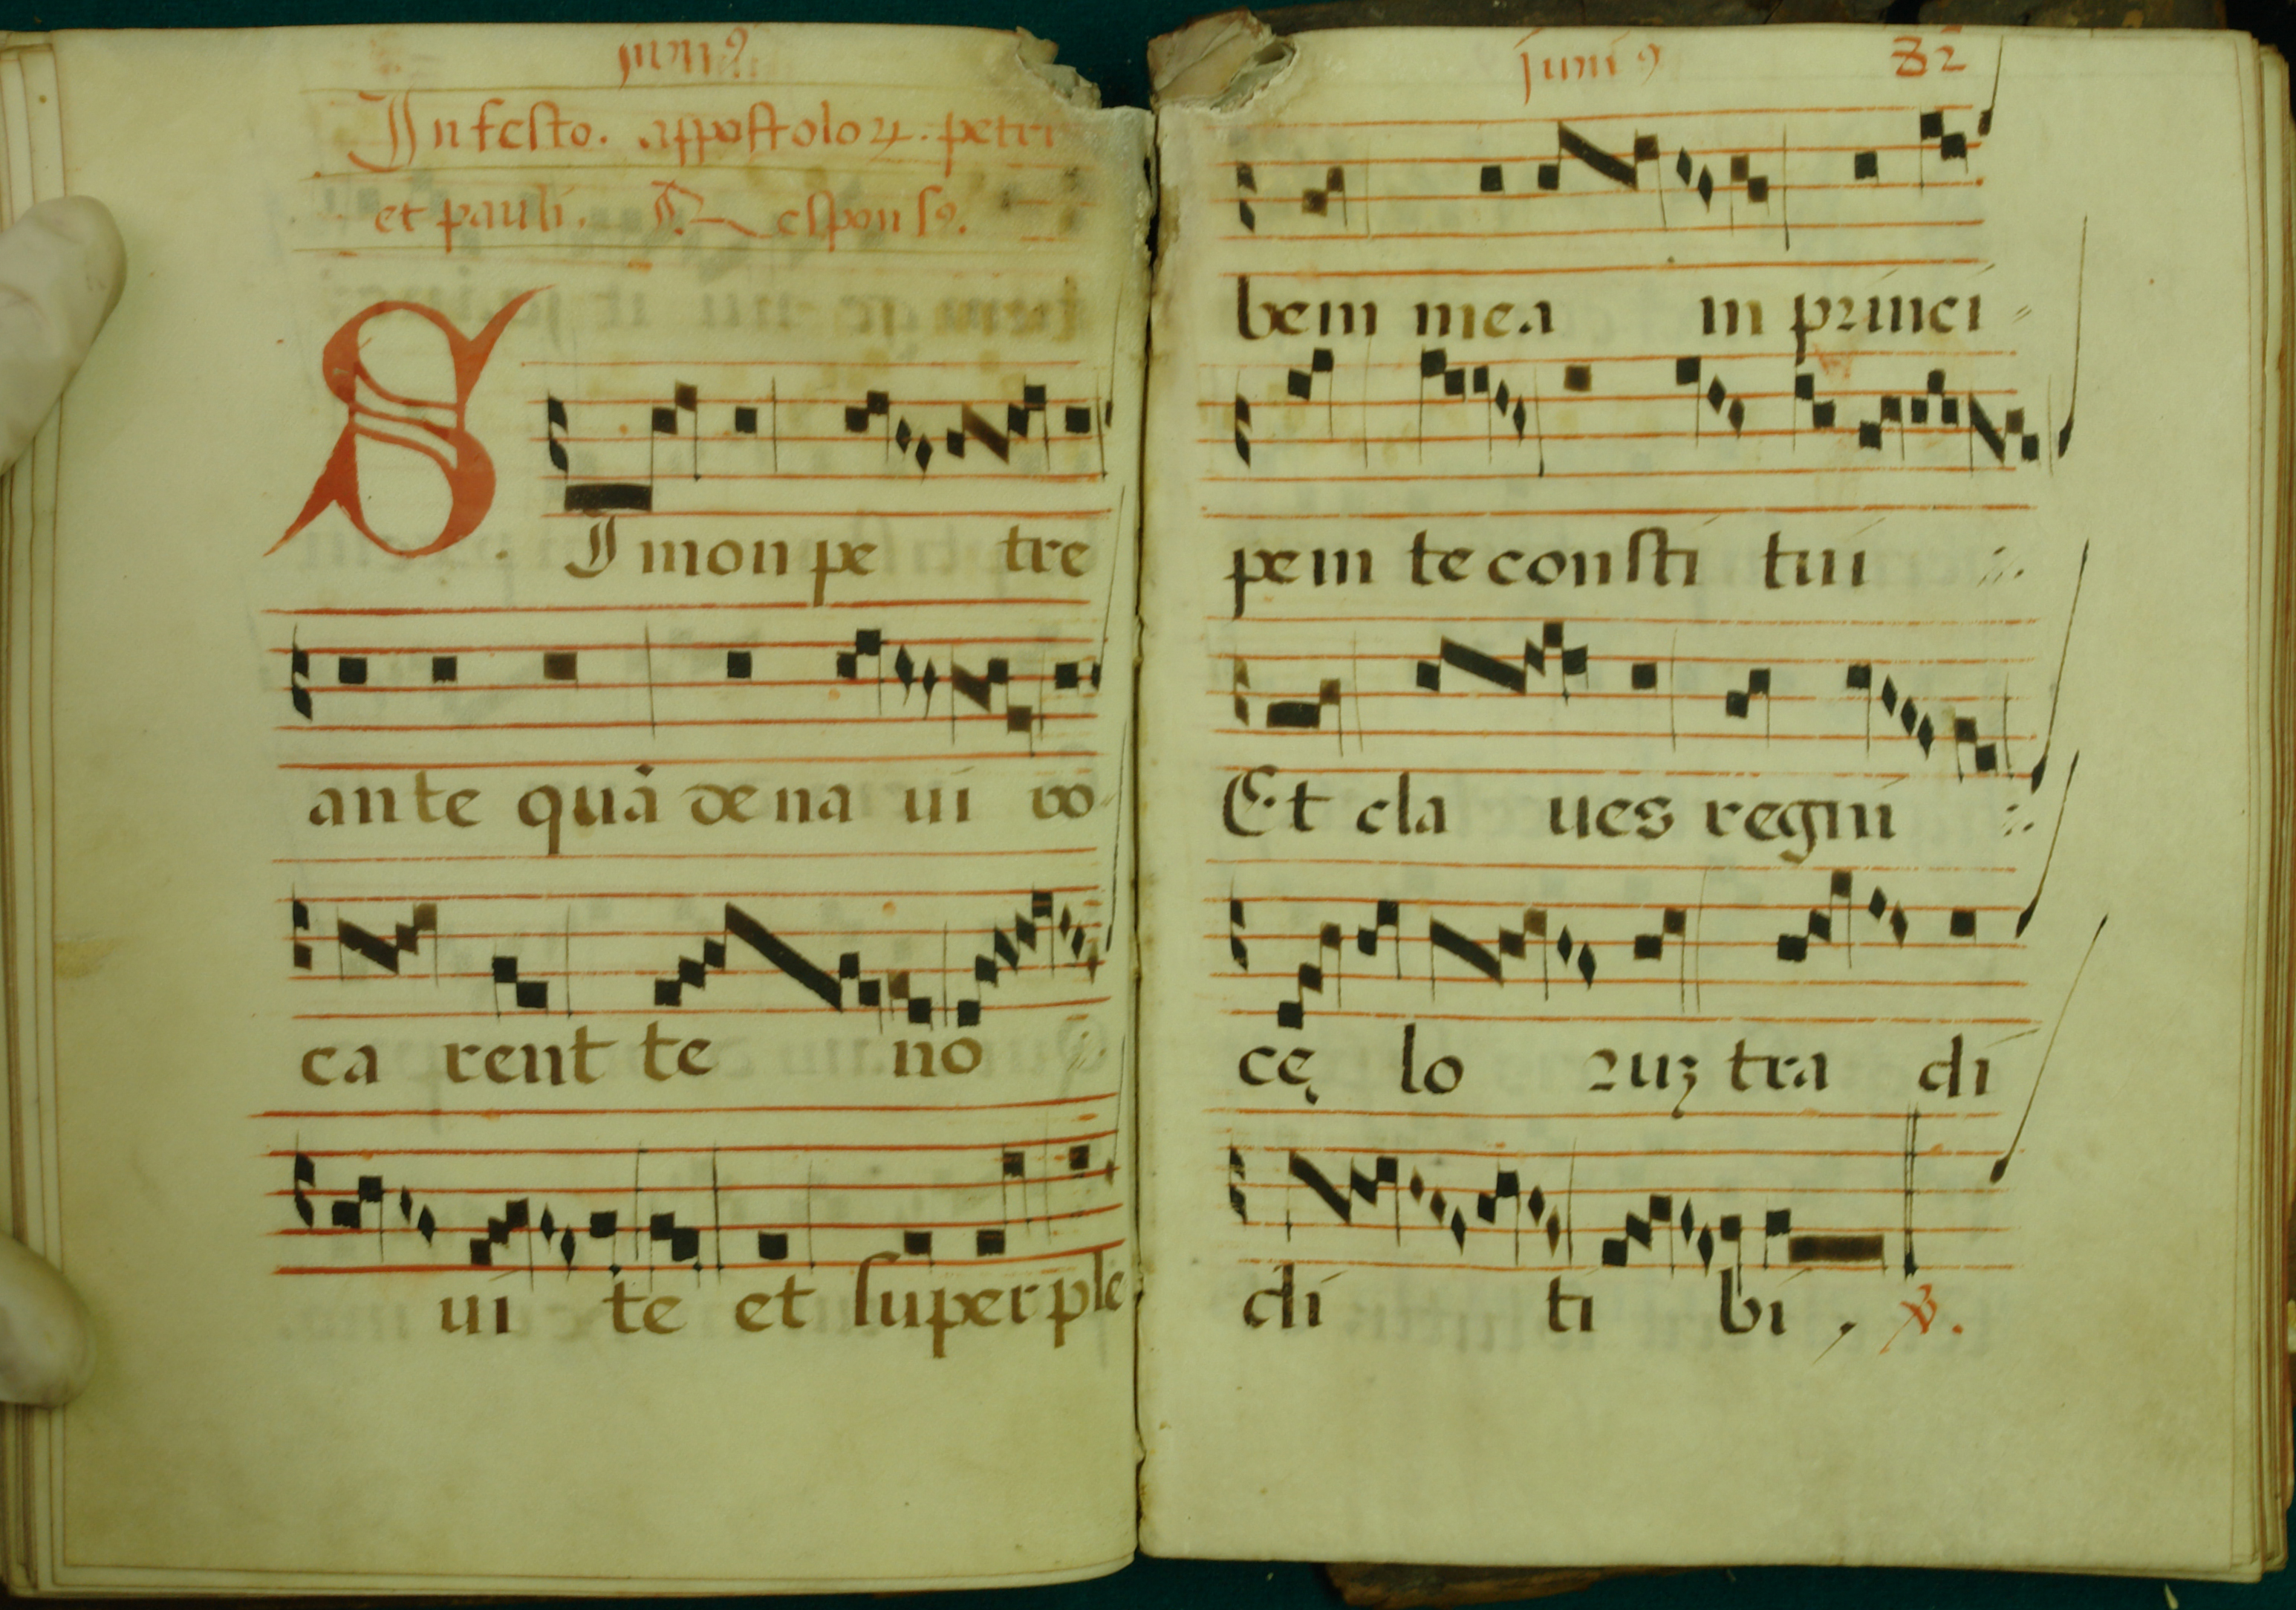 juniꝰ
In festo. appostoloꝝ. petri
et pauli. ℟esponsꝰ.
SImon pe tre
ante quā de na ui vo
ca rent te no
ui te et super ple
juniꝰ 82
bem mea in princi
pem te consti tui
Et cla ues regni
cę lo ꝛuꝫ tra di
di ti bi . ℣.